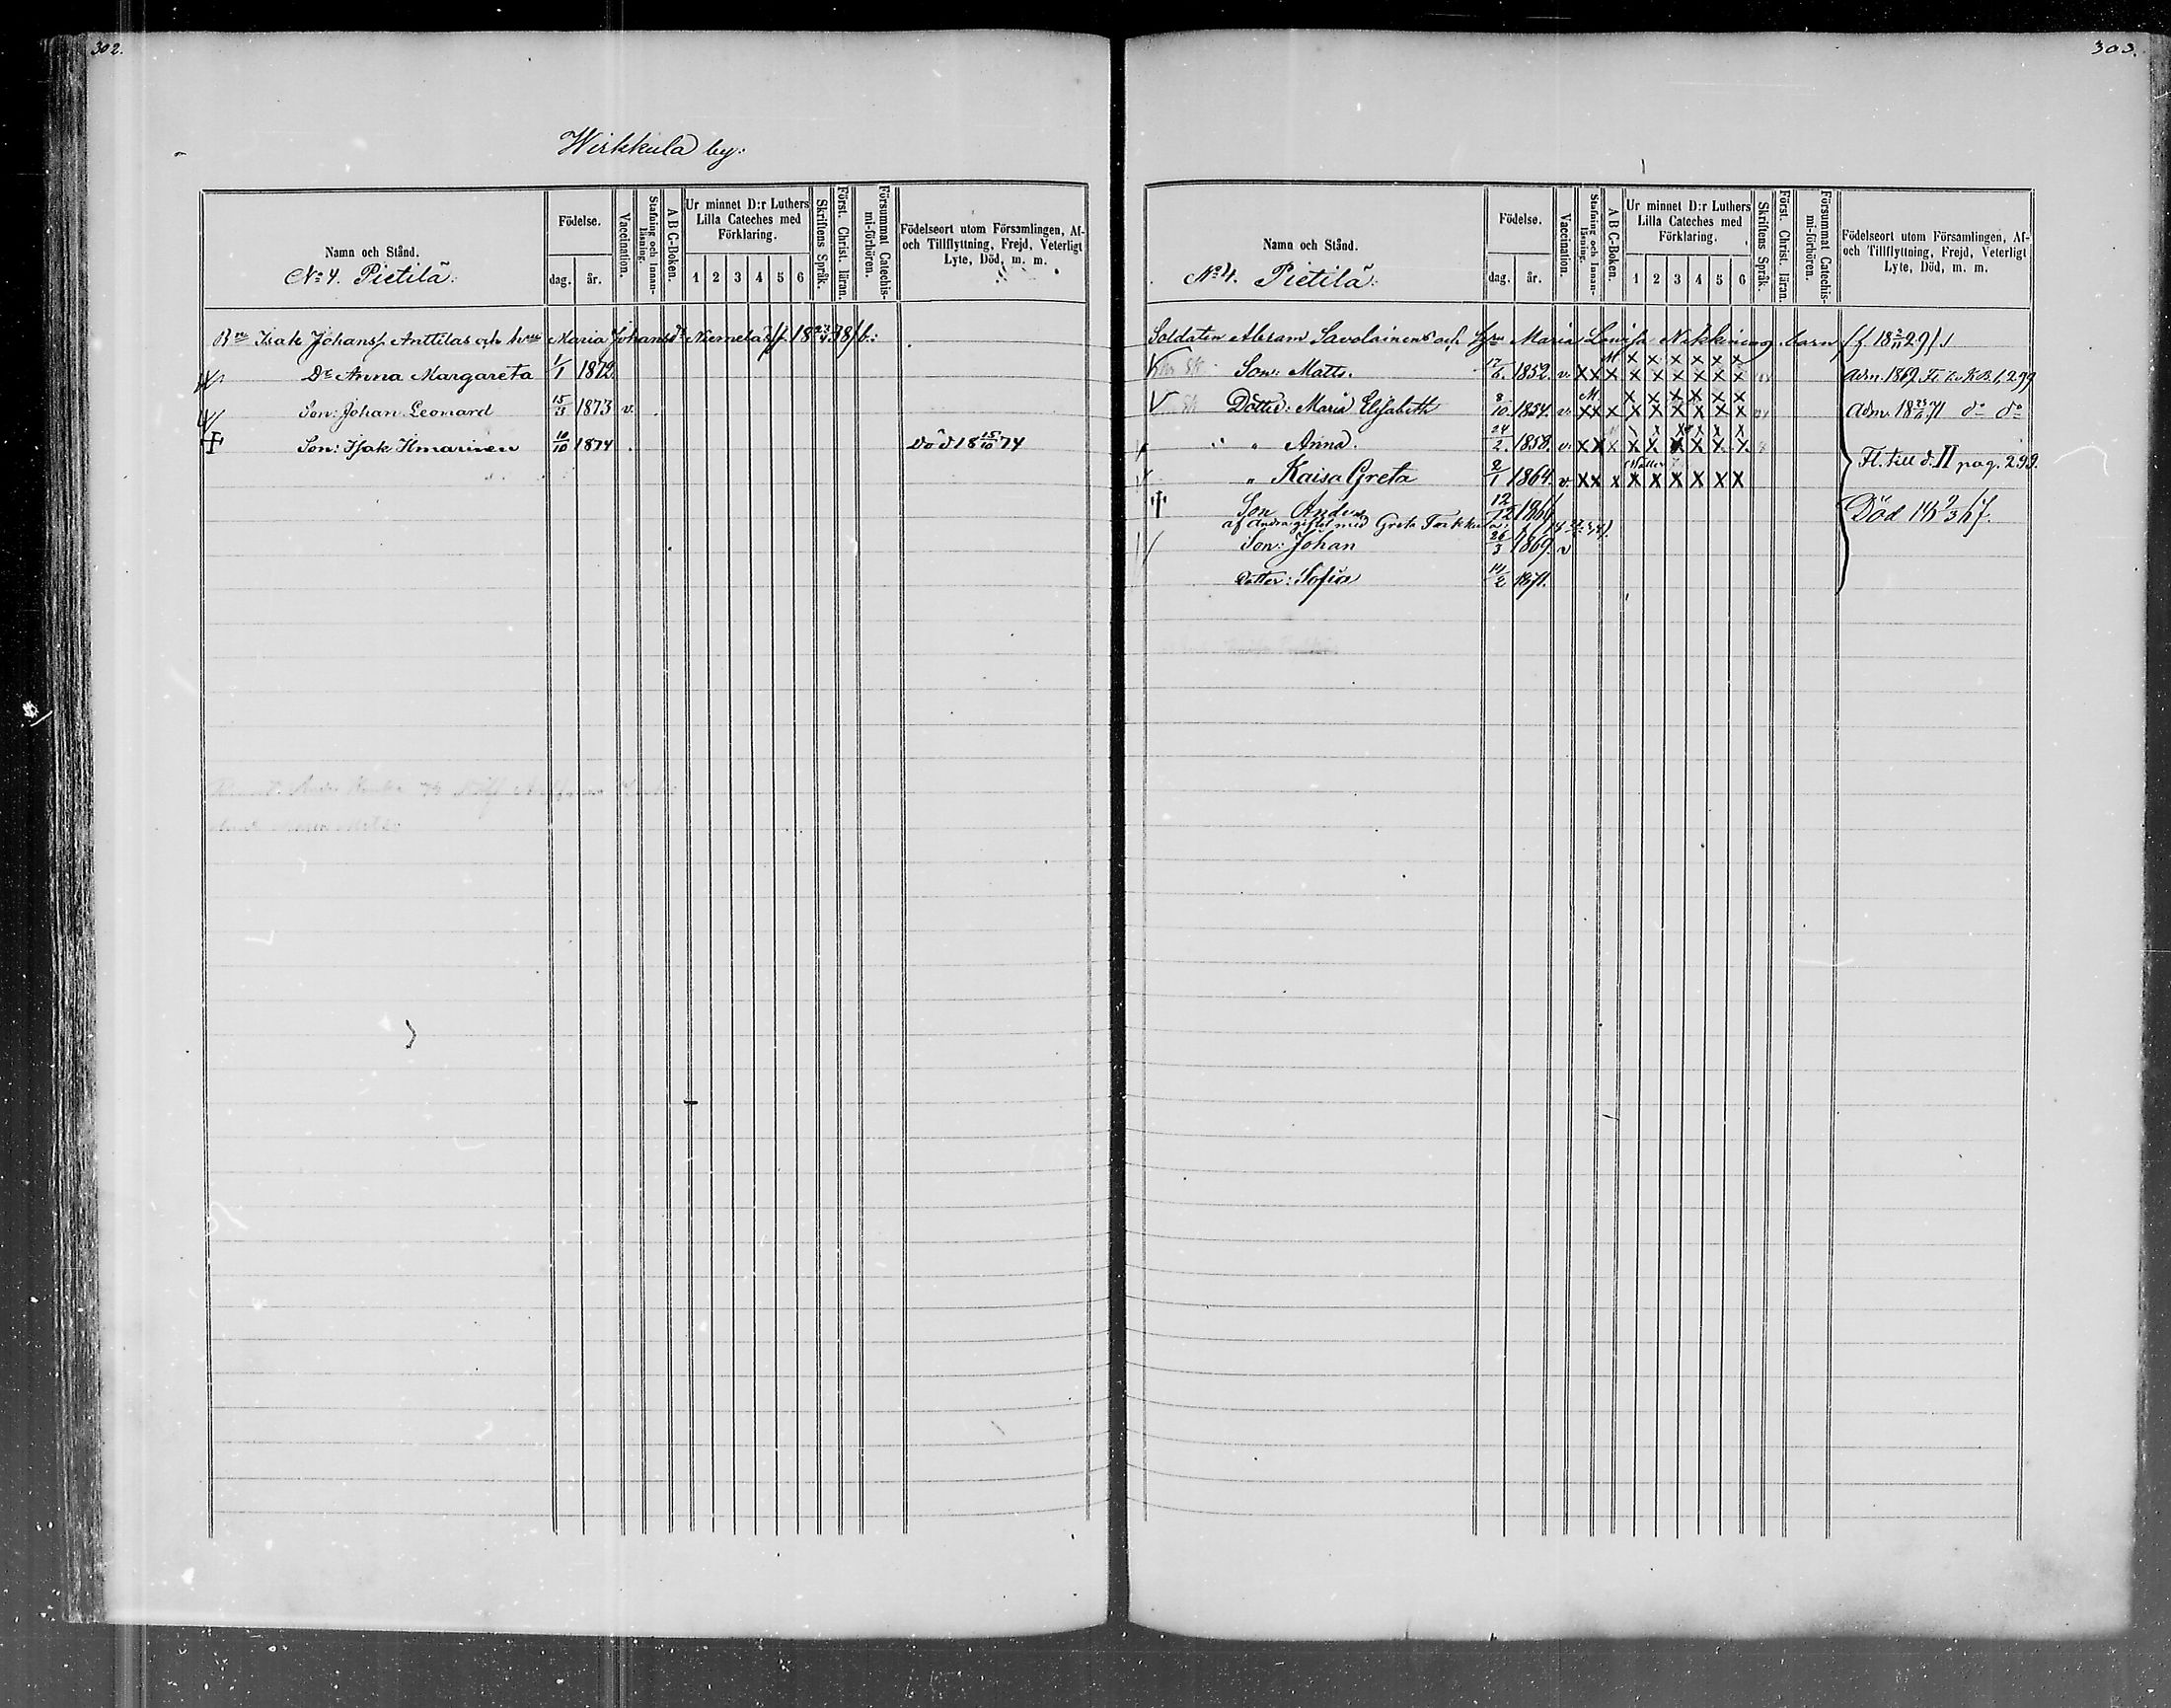 302.
Wirkkula by:
Namn och Stånd.
No 4. Pietilä:
Födelse.
dag. år.
Vaccination.
Stafning och Innanläsning.
A B C-Boken.
Ur minnet D:r Luthers Lilla Cateches med Förklaring.
1 2 3 4 5 6
Skriftens Språk.
Först. Christ. läran.
Försummat Catechismi-förhören.
Födelseort utom Församlingen, Af- och Tillflyttning, Frejd, Veterligt Lyte, Död, m. m.
Isak Johanss. Anttilas och Maria Johansdr Niemelä b:
Dr Anna Margareta 1/1 1872
Son: Johan Leonard 15/3 1873 v.
Son: Isak Ilmarinen 10/10 1874 Död 18 15/10 74
303.
Namn och Stånd.
No 4. Pietilä:
Födelse.
dag. år.
Vaccination.
Stafning och Innanläsning.
A B C-Boken.
Ur minnet D:r Luthers Lilla Cateches med Förklaring.
1 2 3 4 5 6
Skriftens Språk.
Först. Christ. läran.
Försummat Catechismi-förhören.
Födelseort utom Församlingen, Af- och Tillflyttning, Frejd, Veterligt Lyte, Död, m. m.
Soldaten Abram Savolainens och Maria Lovisa barn
Son: Matts. 17/6. 1852. v. Adm. 1869 299
Dotter: Maria Elisabeth 8/10. 1854. v. Adm. 18 71 do do
" Anna. 24/2. 1858. v. Fl. till d. II pag. 299.
" Kaisa Greta 2/1 1864. v.
Son Anders 12/12 1866 Död 18 9/3 67.
af andra giftet med Greta
Son: Johan 26/3 1869. v
Dotter: Sofia 14/2 1871.